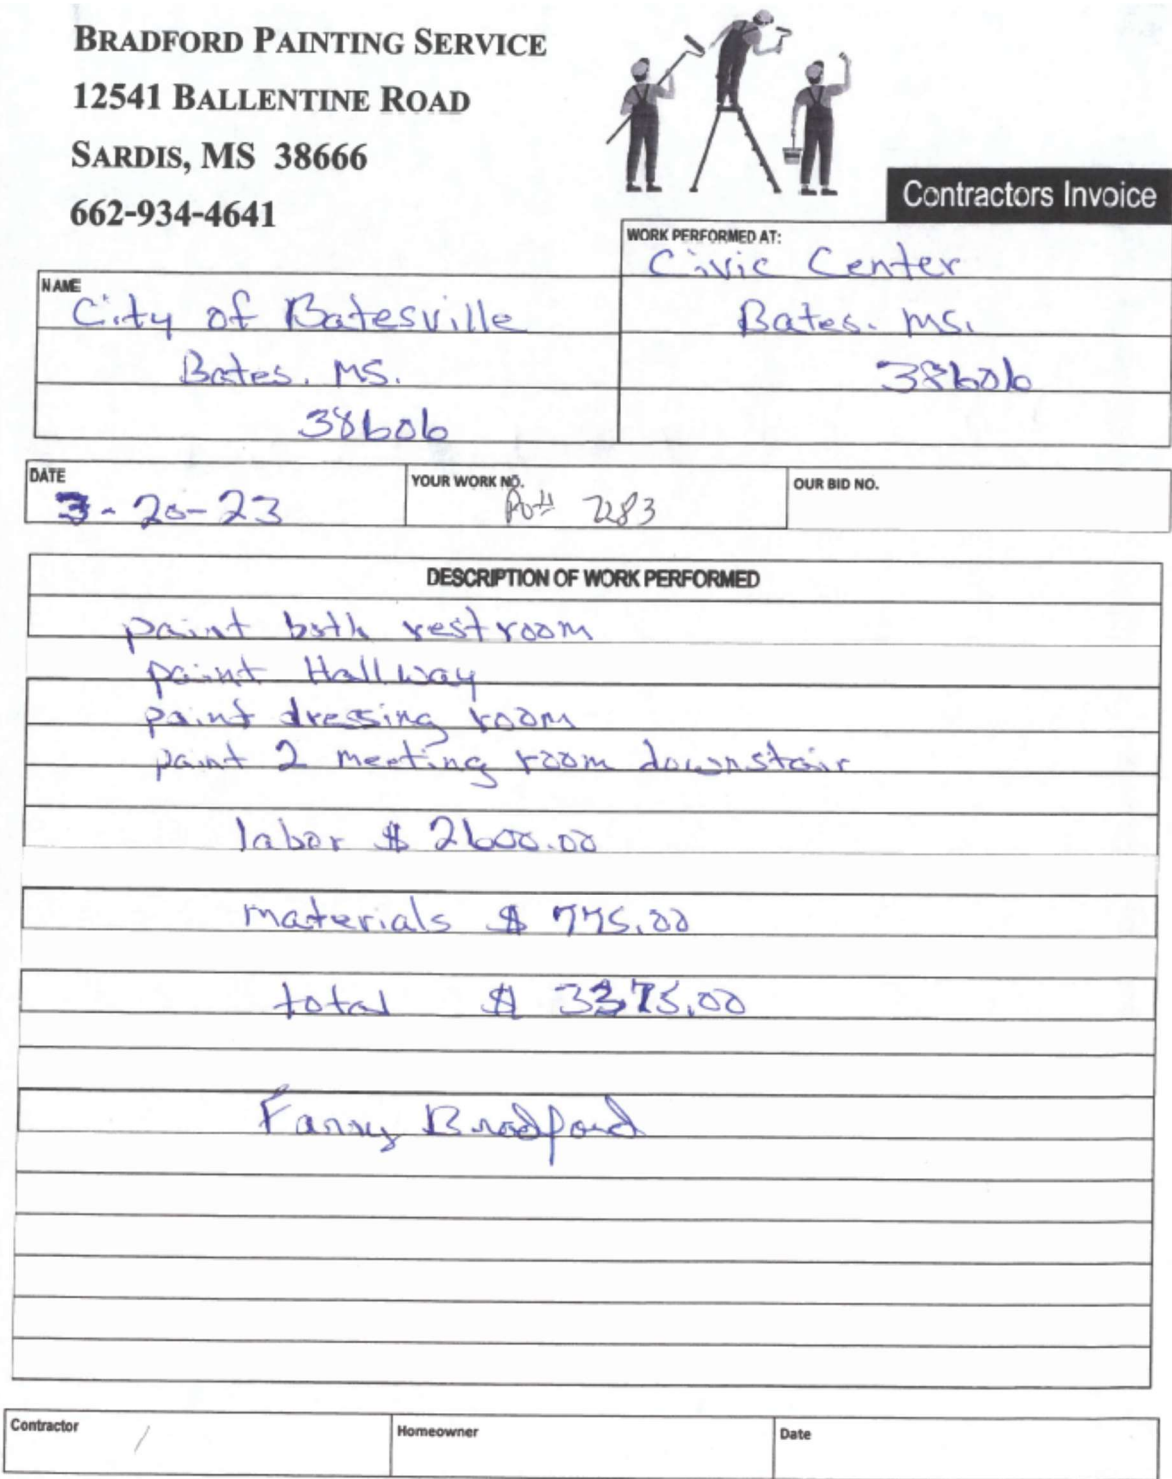 BRADFORD PAINTING SERVICE
12541 BALLENTINE ROAD
SARDIS, MS 38666
662-934-4641
Contractors Invoice
WORK PERFORMED AT:
Civic Center
Bates. MS.
38606
NAME
City of Batesville
Bates. MS.
38606
DATE
3-20-23
YOUR WORK NO.
Po# 7283
OUR BID NO.
DESCRIPTION OF WORK PERFORMED
paint both restroom
paint Hallway
paint dressing room
paint 2 meeting room downstair
labor $ 2600.00
materials $ 775.00
total $ 3375.00
Bradford
Contractor
Homeowner
Date